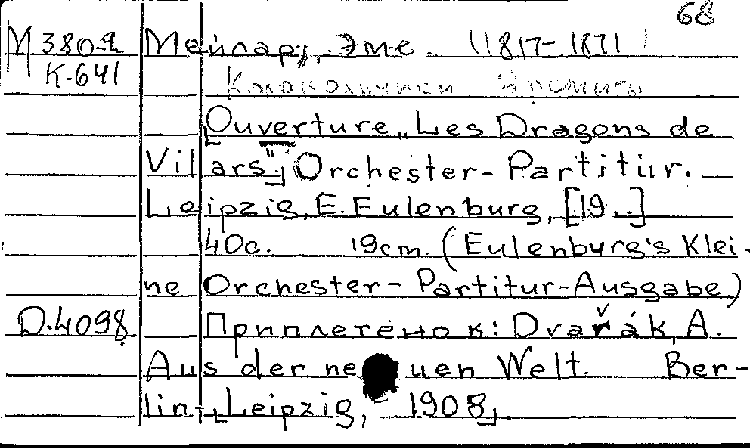 68
М 380-2 Мейлар, Эме. (1817-1871)
К-641 Колокольчики Эремита
[Ouverture „Les Dragons de
Vilars"] Orchester-Partitur.
Leipzig, E. Eulenburg, [19..]
40c. 19cm. (Eulenburg's Klei-
ne Orchester-Partitur-Ausgabe)
D.4098 Приплетено к: Dvařák, A.
Aus der ne uen Welt. Ber-
lin-[Leipzig, 1908].